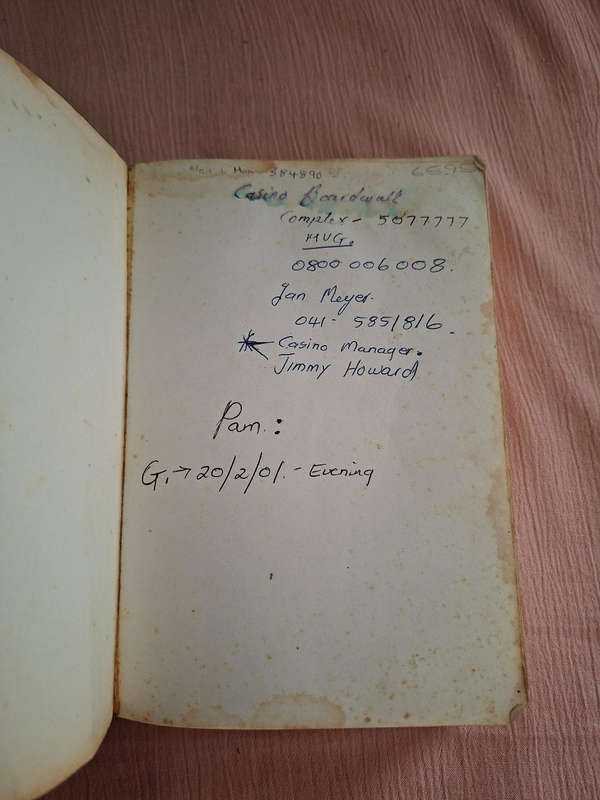 384890
Casino Boardwalk
Complex - 5077777
MVG.
0800 006 008.
Jan Meyer.
041 - 585/8/6.
Casino Manager.
Jimmy Howard
Pam.:
G, → 20/2/01. - Evening